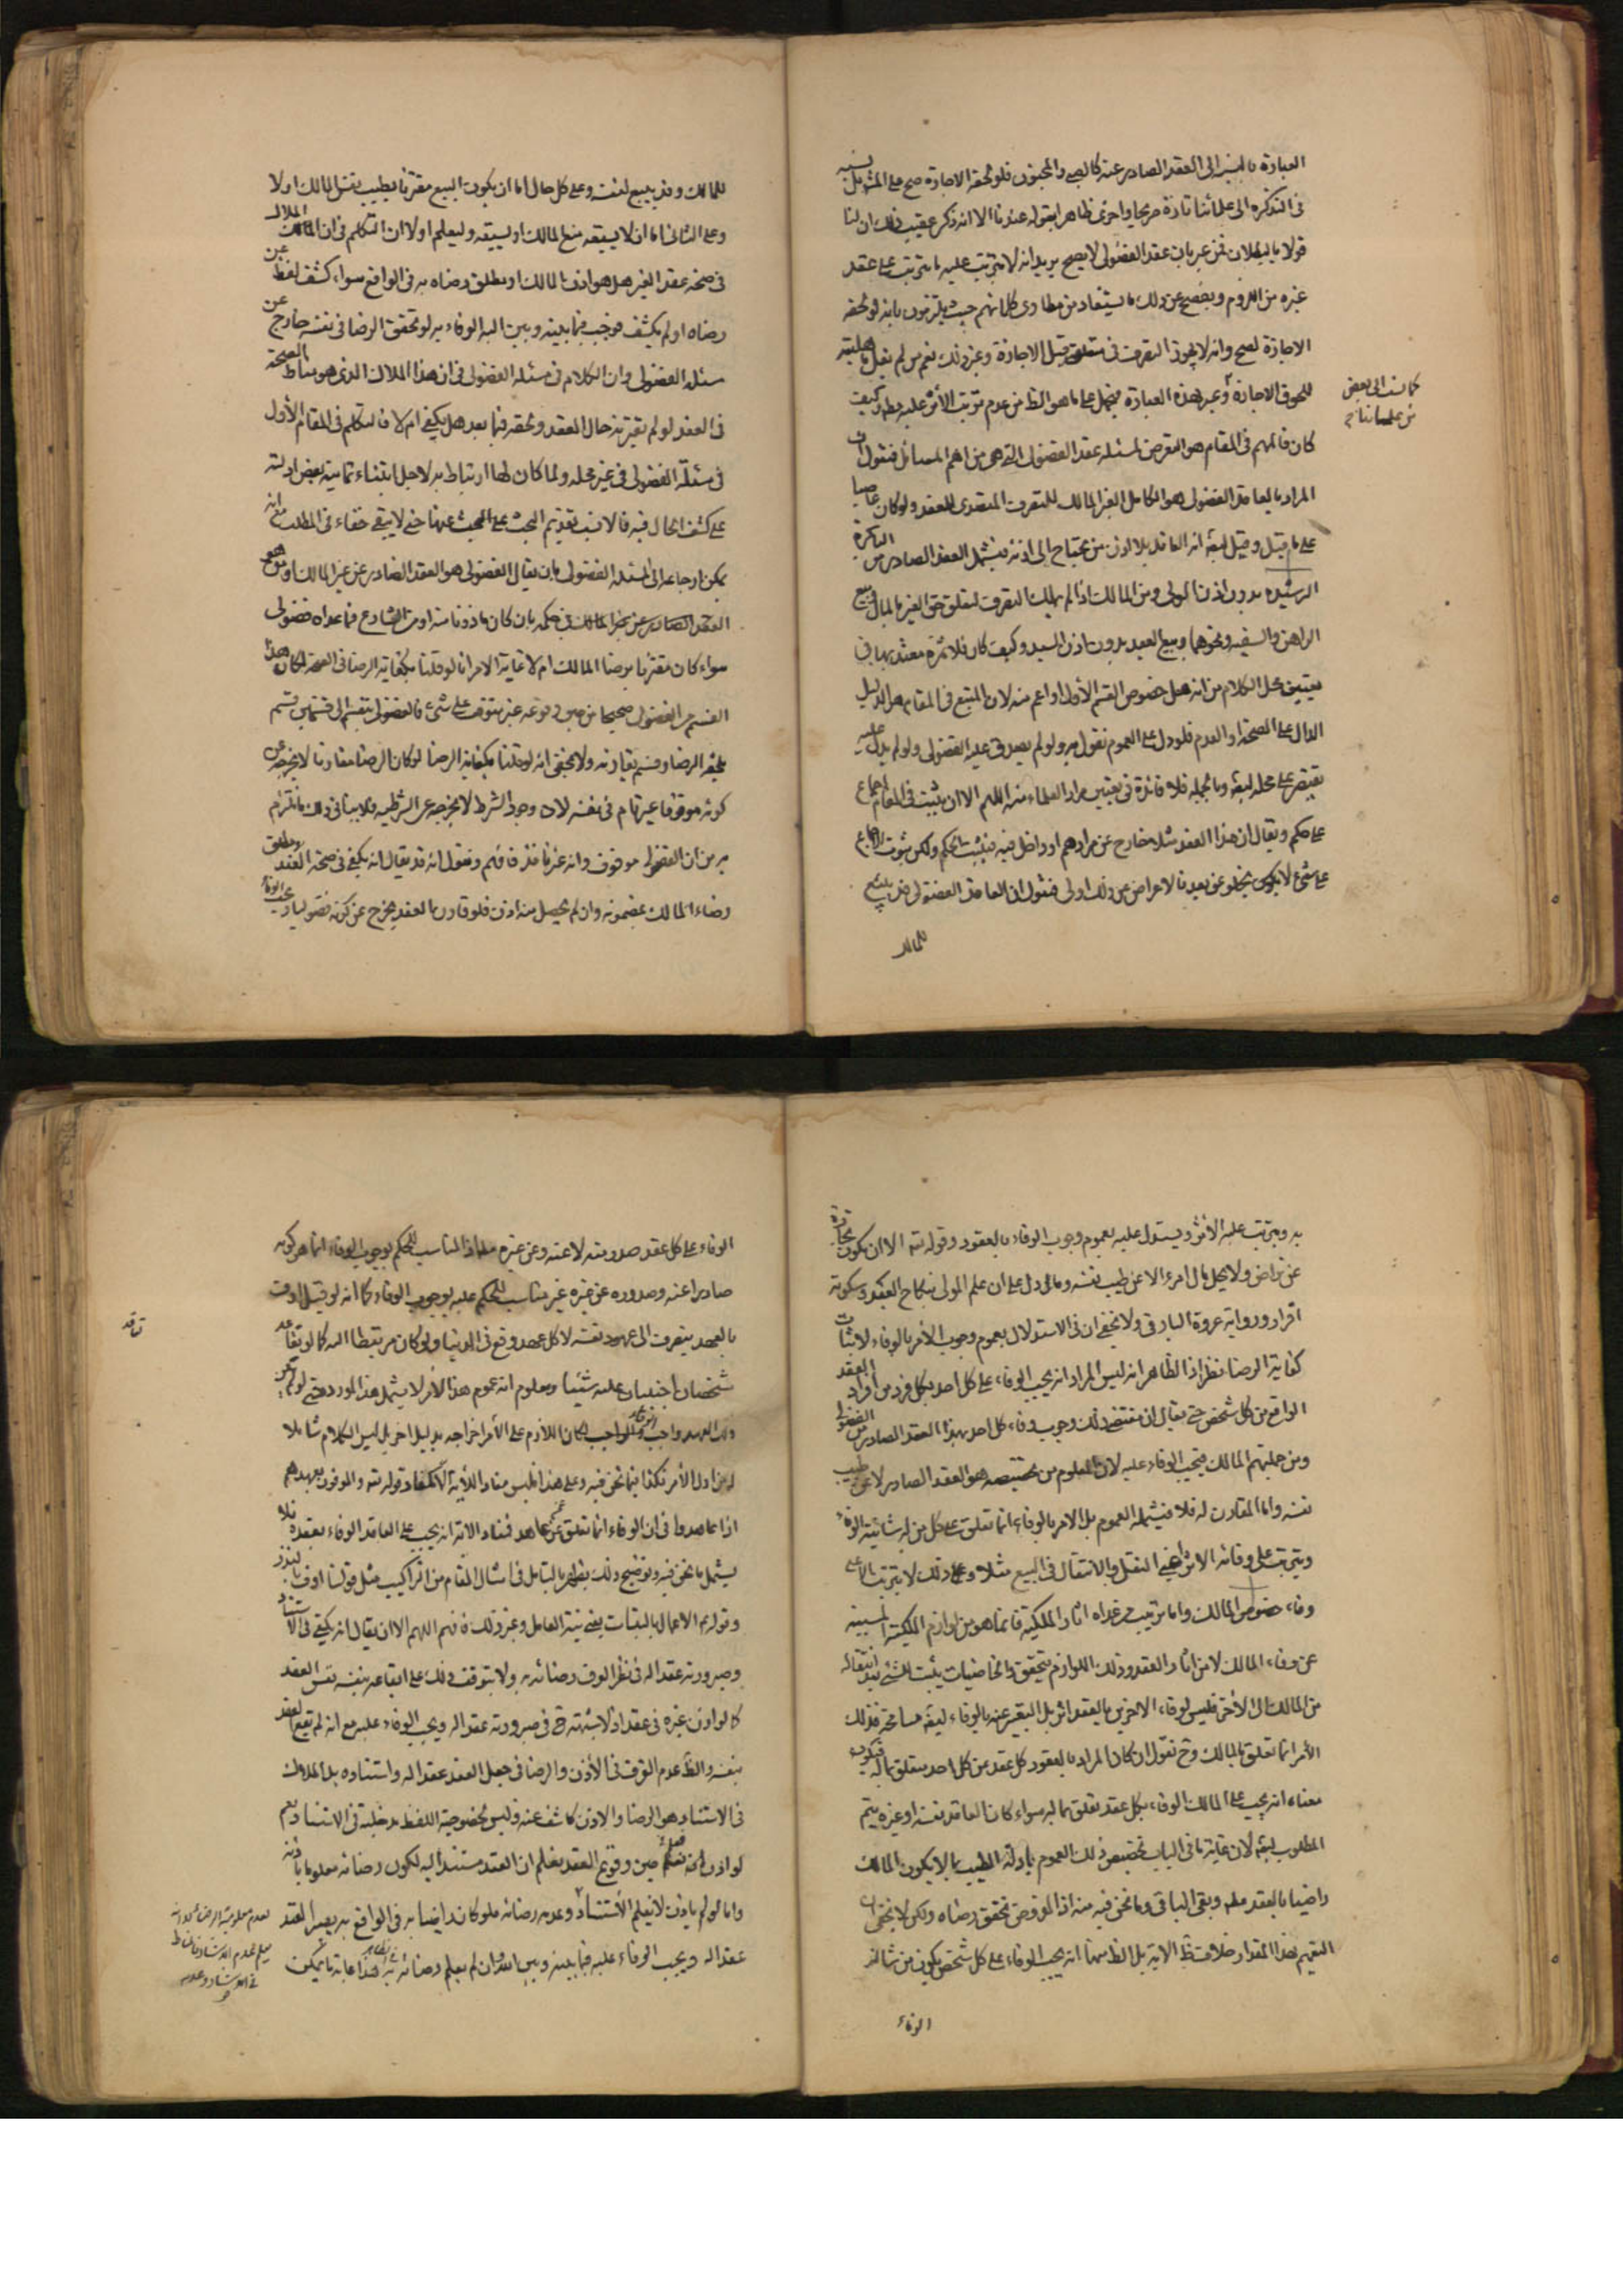 العبارة بالنسبة الى العقد الصادر عنه كالصبى والمجنون فلو لحقه الاجازة صح على المشهور بل نسبه
فى التذكرة الى علمائنا تارة صريحا واخرى ظاهرا بقوله عندنا الا انه ذكر عقيب ذلك ان لنا
قولا بالبطلان فمن عبر بان عقد الفضولى لا يصح يريد انه لا يترتب عليه ما يترتب على عقد
غيره من اللزوم ويفصح عن ذلك ما يستفاد من مطاوى كلماتهم حيث يلتزمون بانه لو لحقه
الاجازة لصح وانه لا يجوز التصرف فى متعلقه قبل الاجازة وغير ذلك نعم من لم يقل بقابليته
للحوق الاجازة وعبر بهذه العبارة فيحمل على ما هو الظ من عدم ترتب الاثر عليه مط وكيف
كما نسب الى بعض
من علمائنا
كان فالمهم فى المقام هو التعرض لمسئلة عقد الفضولى التى هى من اهم المسائل فنقول ان
المراد بالعاقد الفضولى هو الكامل الغير المالك للتصرف المتصدى للعقد ولو كان غاصبا
على ما قيل وقيل ايضا انه العاقد بلا اذن من يحتاج الى اذنه فيشمل العقد الصادر من الباكرة
الرشيدة بدون اذن الولى ومن المالك اذا لم يملك التصرف لتعلق حق الغير بالمال كبيع
الراهن والسفيه ونحوهما وبيع العبد بدون اذن السيد وكيف كان فلا ثمرة معتد بها فى
تعيين محل الكلام من انه هل خصوص القسم الاول او اعم منه لان المتبع فى المقام هو الدليل
الدال على الصحة او العدم فلو دل على العموم نقول به ولو لم يصدق عليه الفضولى ولو لم يدل عليه
يقتصر على محله ايضا وبالجملة فلا فائدة فى تعيين مراد العلماء منه اللهم الا ان يثبت فى المقام اجماع
على حكم ويقال ان هذا العقد مثلا خارج عن مرادهم او داخل فيه فيثبت الحكم ولكن ثبوت الاجماع
على شىء لا يخلو عن بعد فالاعراض عن ذلك اولى فنقول ان العاقد الفضولى قد يبيع
للمالك
للمالك وقد يبيع لنفسه وعلى كل حال اما ان يكون البيع مقترنا بطيب نفس المالك او لا
وعلى الثانى اما ان لا يسبقه منع المالك او يسبقه وليعلم اولا ان التكلم فى ان الملاك
فى صحة عقد الغير هل هو اذن المالك او مطلق رضاه به فى الواقع سواء كشف لفظ عن
رضاه او لم يكشف فيجب فيما بينه وبين الله الوفاء به لو تحقق الرضا فى نفسه خارج عن
مسئلة الفضولى وان الكلام فى مسئلة الفضولى فى ان هذا الملاك الذى هو مناط الصحة
فى العقد لو لم يقترنه حال العقد ولحقه فيما بعد هل يكفى ام لا فالتكلم فى المقام الاول
فى مسئلة الفضولى فى غير محله ولما كان لها ارتباط به لاجل ابتناء تمامية بعض ادلته
على كشف الحال فيه فالانسب تقديم البحث على البحث عنها حتى لا يبقى خفاء فى المطلب مع انه
يمكن ارجاعه الى المسئلة الفضولى بان يقال الفضولى هو العقد الصادر عن غير المالك ومن هو
بحكمه بان كان ماذونا منه او من الشارع فما عداه فضولى
سواء كان مقترنا برضا المالك ام لا غاية الامر انا لو قلنا بكفاية الرضا فى الصحة لكان هذا
القسم من الفضولى صحيحا من حين وقوعه غير متوقف على شىء فالفضولى ينقسم الى قسمين قسم
يلحقه الرضا وقسم يقارنه ولا يخفى انه لو قلنا بكفاية الرضا لو كان الرضا مقارنا لا يخرجه عن
كونه موقوفا غير تام فى نفسه لان وجود الشرط لا يخرجه عن الشرطية فلا ينافى ذلك ما نلتزم
به من ان الفضولى موقوف وانه غير نافذ فافهم ونقول انه قد يقال انه يكفى فى صحة العقد مطلق
رضاء المالك بمضمونه وان لم يحصل منه اذن فلو قارن بالعقد يخرج عن كونه فضوليا ويجب الوفاء
به ويترتب عليه الاثر ويستدل عليه بعموم وجوب الوفاء بالعقود وقوله تعه الا ان تكون تجارة
عن تراض ولا يحل مال امرء الا عن طيب نفسه وما دل على ان علم المولى بنكاح العبد وسكوته
اقرار ورواية عروة البارقى ولا يخفى ان فى الاستدلال بعموم وجوب الامر بالوفاء لاثبات
كفاية الرضا نظرا اذ الظاهر انه ليس المراد انه يجب الوفاء على كل احد بكل فرد من افراد العقد
الواقع من كل شخص حتى يقال ان مقتضى ذلك وجوب وفاء كل احد بهذا العقد الصادر من الفضولى
ومن جملتهم المالك فيجب الوفاء عليه لان المعلوم من تخصيصه هو العقد الصادر لا عن طيب
نفسه واما المقارن له فلا فيشمله العموم بل الامر بالوفاء انما تعلق على كل من له شانية الوفاء
ويترتب على وفائه الاثر اعنى النقل والانتقال فى البيع مثلا وعلى ذلك لا يترتب الا على
وفاء خصوص المالك واما ترتيب من عداه اثار الملكية فانما هو من لوازم الملكية المسببة
عن وفاء المالك لا من اثار العقد وذلك اللوازم يتحقق يثبت للشىء بعد انتقاله
من المالك الى الآخر فليس لوفاء الاخرين بالعقد اثر بل التعبير عنه بالوفاء ايضا مسامحة فذلك
الامر انما تعلق بالمالك وح نقول ان كان المراد بالعقود كل عقد عن كل احد متعلق بماله فيكون
معناه انه يجب على المالك الوفاء بكل عقد تعلق بماله سواء كان العاقد نفسه او غيره يتم
المطلوب ايضا لان غاية ما فى الباب تخصيص ذلك العموم بادلة الطيب بما لا يكون المالك
راضيا بالعقد معه ويبقى الباقى وما نحن فيه منه اذ المفروض تحقق رضاه ولكن لا يخفى ان
التعميم بهذا المقدار خلاف ظ الاية بل الظ منها انه يجب الوفاء على كل شخص يكون من شانه
الوفاء
الوفاء على كل عقد صدر منه لا عنه وعن غيره معا اذ المناسب للحكم بوجوب الوفاء انما هو كونه
صادرا عنه وصدوره عن غيره غير مناسب للحكم عليه بوجوب الوفاء كما انه لو قيل اوف
بالعهد ينصرف الى عهود نفسه لا كل عهد وقع فى الدنيا ولو كان مرتبطا اليه كما لو تعاهد
شخصان اجنبيان عليه شيئا ومعلوم ان عموم هذا الامر لا يشمل هذا المورد حتى لو لم يكن
ذلك العهد واجب الوفاء لكان اللازم على الآمر اخراجه بدليل اخر بل ليس الكلام شاملا
له من اول الامر فكذا فيما نحن فيه وعلى هذا فليس مفاد الاية الا كمفاد قوله تعه والموفون بعهدهم
اذا عاهدوا فى ان الوفاء انما تعلق عمن عاهد فمفاد الاية انه يجب على العاقد الوفاء بعقده فلا
يشمل ما نحن فيه وتوضيح ذلك يظهر بالتامل فى امثال المقام من التراكيب مثل قولنا اوف بالنذر
وقولهم الاعمال بالنيات يعنى نية العامل وغير ذلك فافهم اللهم الا ان يقال انه يكفى فى الاستناد
وصيرورته عقدا له فى نظر العرف رضائه به ولا يتوقف ذلك على ايقاعه بنفسه نفس العقد
كما لو اذن غيره فى عقد اذ لا شبهة ح فى صيرورته عقدا له ويجب الوفاء عليه مع انه لم يقع العقد
بنفسه والظ عدم الفرق فى الاذن والرضا فى جعل العقد عقدا له واستناده بل الملاك
فى الاستناد هو الرضا والاذن كاشف عنه وليس لخصوصية اللفظ مدخلية فى الاستناد نعم
لو اذن فيعلم حين وقوع العقد ان العقد مستند اليه لكون رضائه معلوما باذنه
واما لو لم ياذن لا يعلم الاستناد وعدمه رضائه فلو كان راضيا به فى الواقع يصير العقد
عقدا له ويجب الوفاء عليه فيما بينه وبين الله وان لم يعلم رضائه به هذا غاية ما يمكن